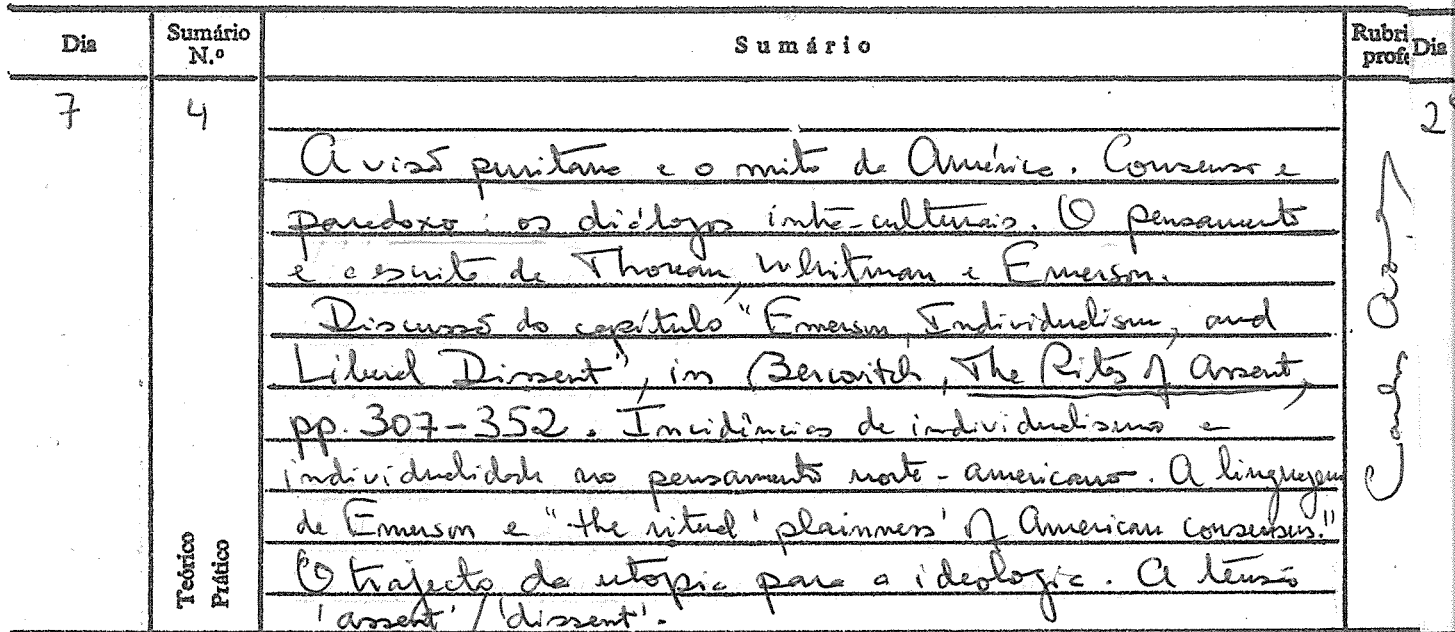 Dia
Sumário N.º
Sumário
Rubri
profe
Dia
7
4
2
A visão puritana e o mito da América. Consenso e
paradoxo: os diálogos intra-culturais. O pensamento
e a escrita de Thoreau, Whitman e Emerson.
Discussão do capítulo "Emerson, Individualism, and
Liberal Dissent", in Bercovitch, The Rites of Assent,
pp. 307-352. Incidências de individualismo e
individualidade no pensamento norte-americano. A linguagem
de Emerson e "the ritual 'plainness' of American consensus."
O trajecto da utopia para a ideologia. A tensão
'assent' / 'dissent'.
Teórico
Prático